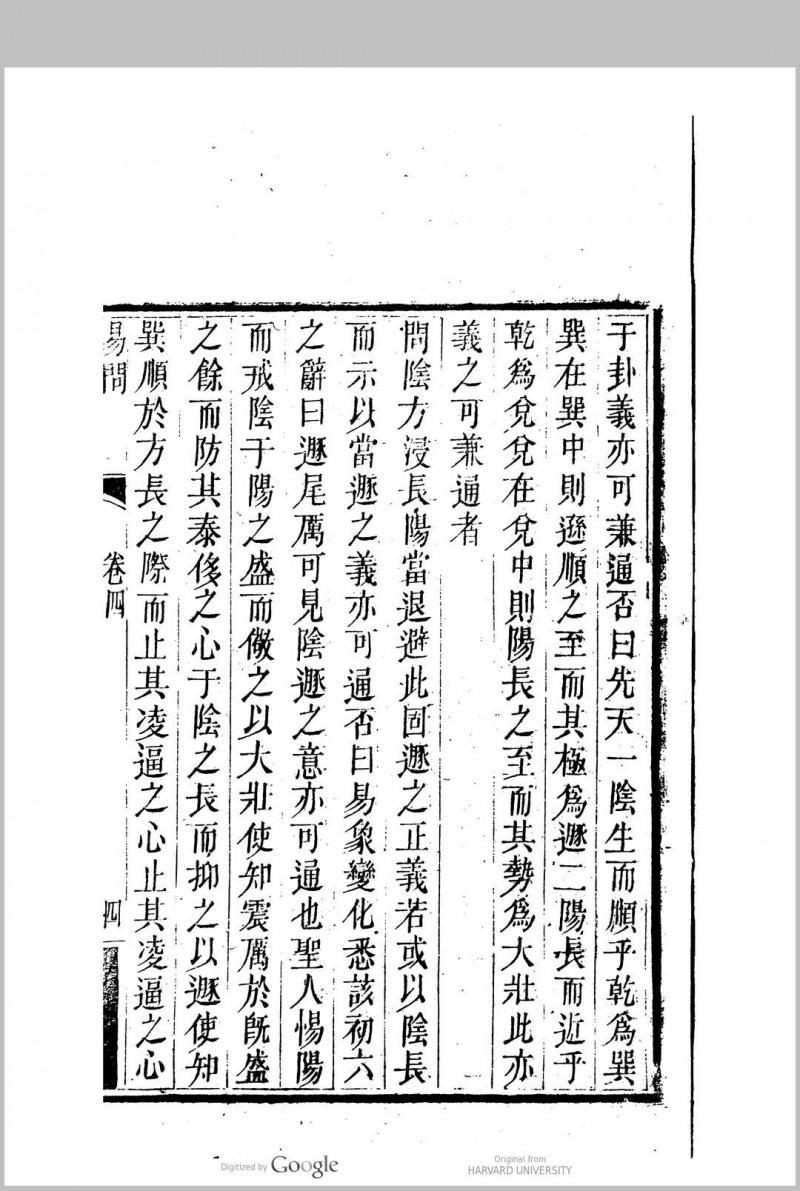 于卦義亦可兼通否曰先天一陰生而順乎乾爲巽
巽在巽中則遜順之至而其極爲遯二陽長而近乎
乾爲兌兌在兌中則陽長之至而其勢爲大壯此亦
義之可兼通者
問陰方浸長陽當退避此固遯之正義若或以陰長
而示以當遯之義亦可通否曰易象變化悉該初六
之辭曰遯尾厲可見陰遯之意亦可通也聖人惕陽
而戒陰于陽之盛而儆之以大壯使知震厲於既盛
之餘而防其泰侈之心于陰之長而抑之以遯使知
巽順於方長之際而止其凌逼之心止其凌逼之心
易問 卷四 四
Digitized by Google
Original from
HARVARD UNIVERSITY